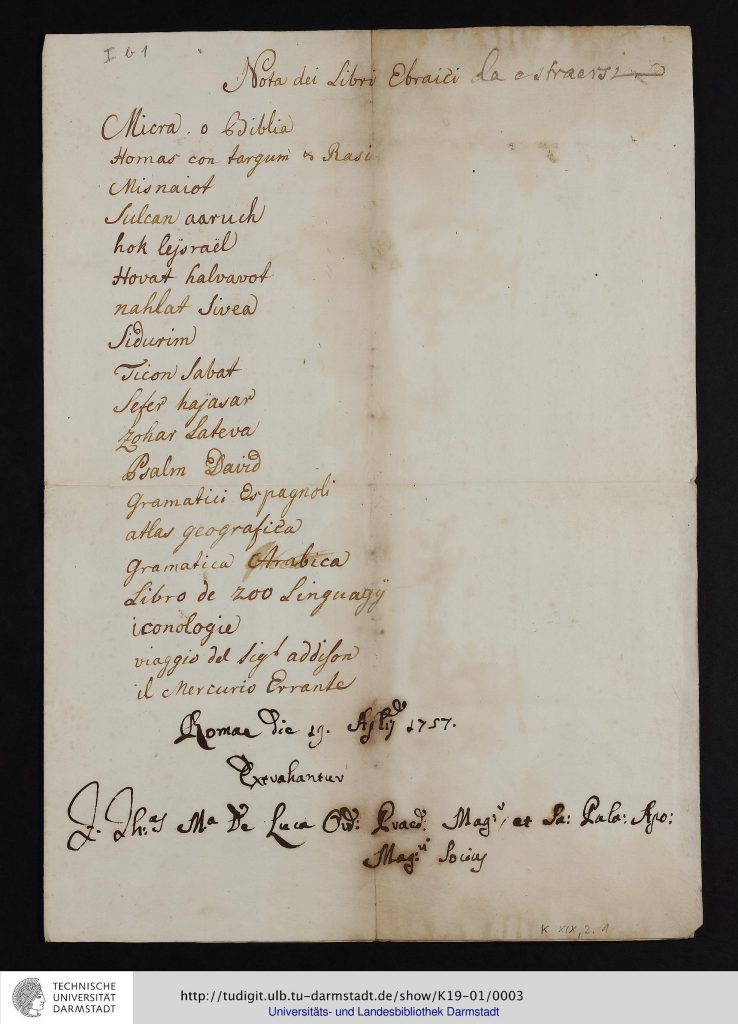 I b 1
Nota dei Libri Ebraici da estraersi
Micra o Biblia
Homas con targum & Rasi
Misnaiot
Sulcan aaruch
hok lejsraël
Hovat halvavot
nahlat Sivea
Sidurim
Ticon Sabat
Sefer hajasar
Zohar Lateva
Psalm David
Gramatici Espagnoli
atlas geografica
Gramatica Arabica
Libro de 200 Linguagÿ
iconologie
viaggio del Sigʳ addison
il Mercurio Errante
Romae die 19. 1757.
Extrahantur
F. Th:as Ma De Luca Ord: Praed: Magr, et Sa: Pala: Apo:
Mag:ri Socius
K XIX, 2. 1
TECHNISCHE
UNIVERSITÄT
DARMSTADT
http://tudigit.ulb.tu-darmstadt.de/show/K19-01/0003
Universitäts- und Landesbibliothek Darmstadt